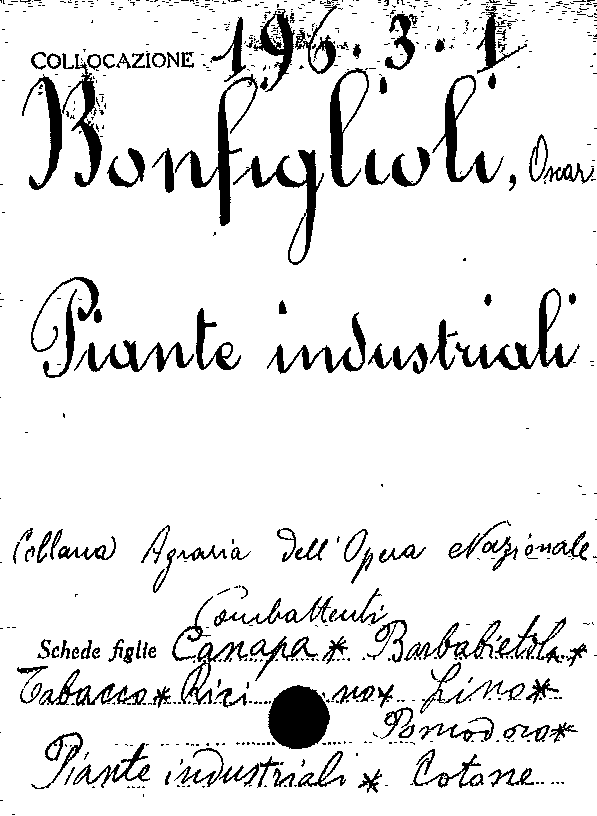 COLLOCAZIONE 196.3.1
Bonfiglioli, Oscar
Piante industriali
Collana Agraria dell'Opera Nazionale
Combattenti
Schede figlie Canapa * Barbabietola *
Tabacco * Rici no * Lino *
Pomodoro *
Piante industriali * Cotone